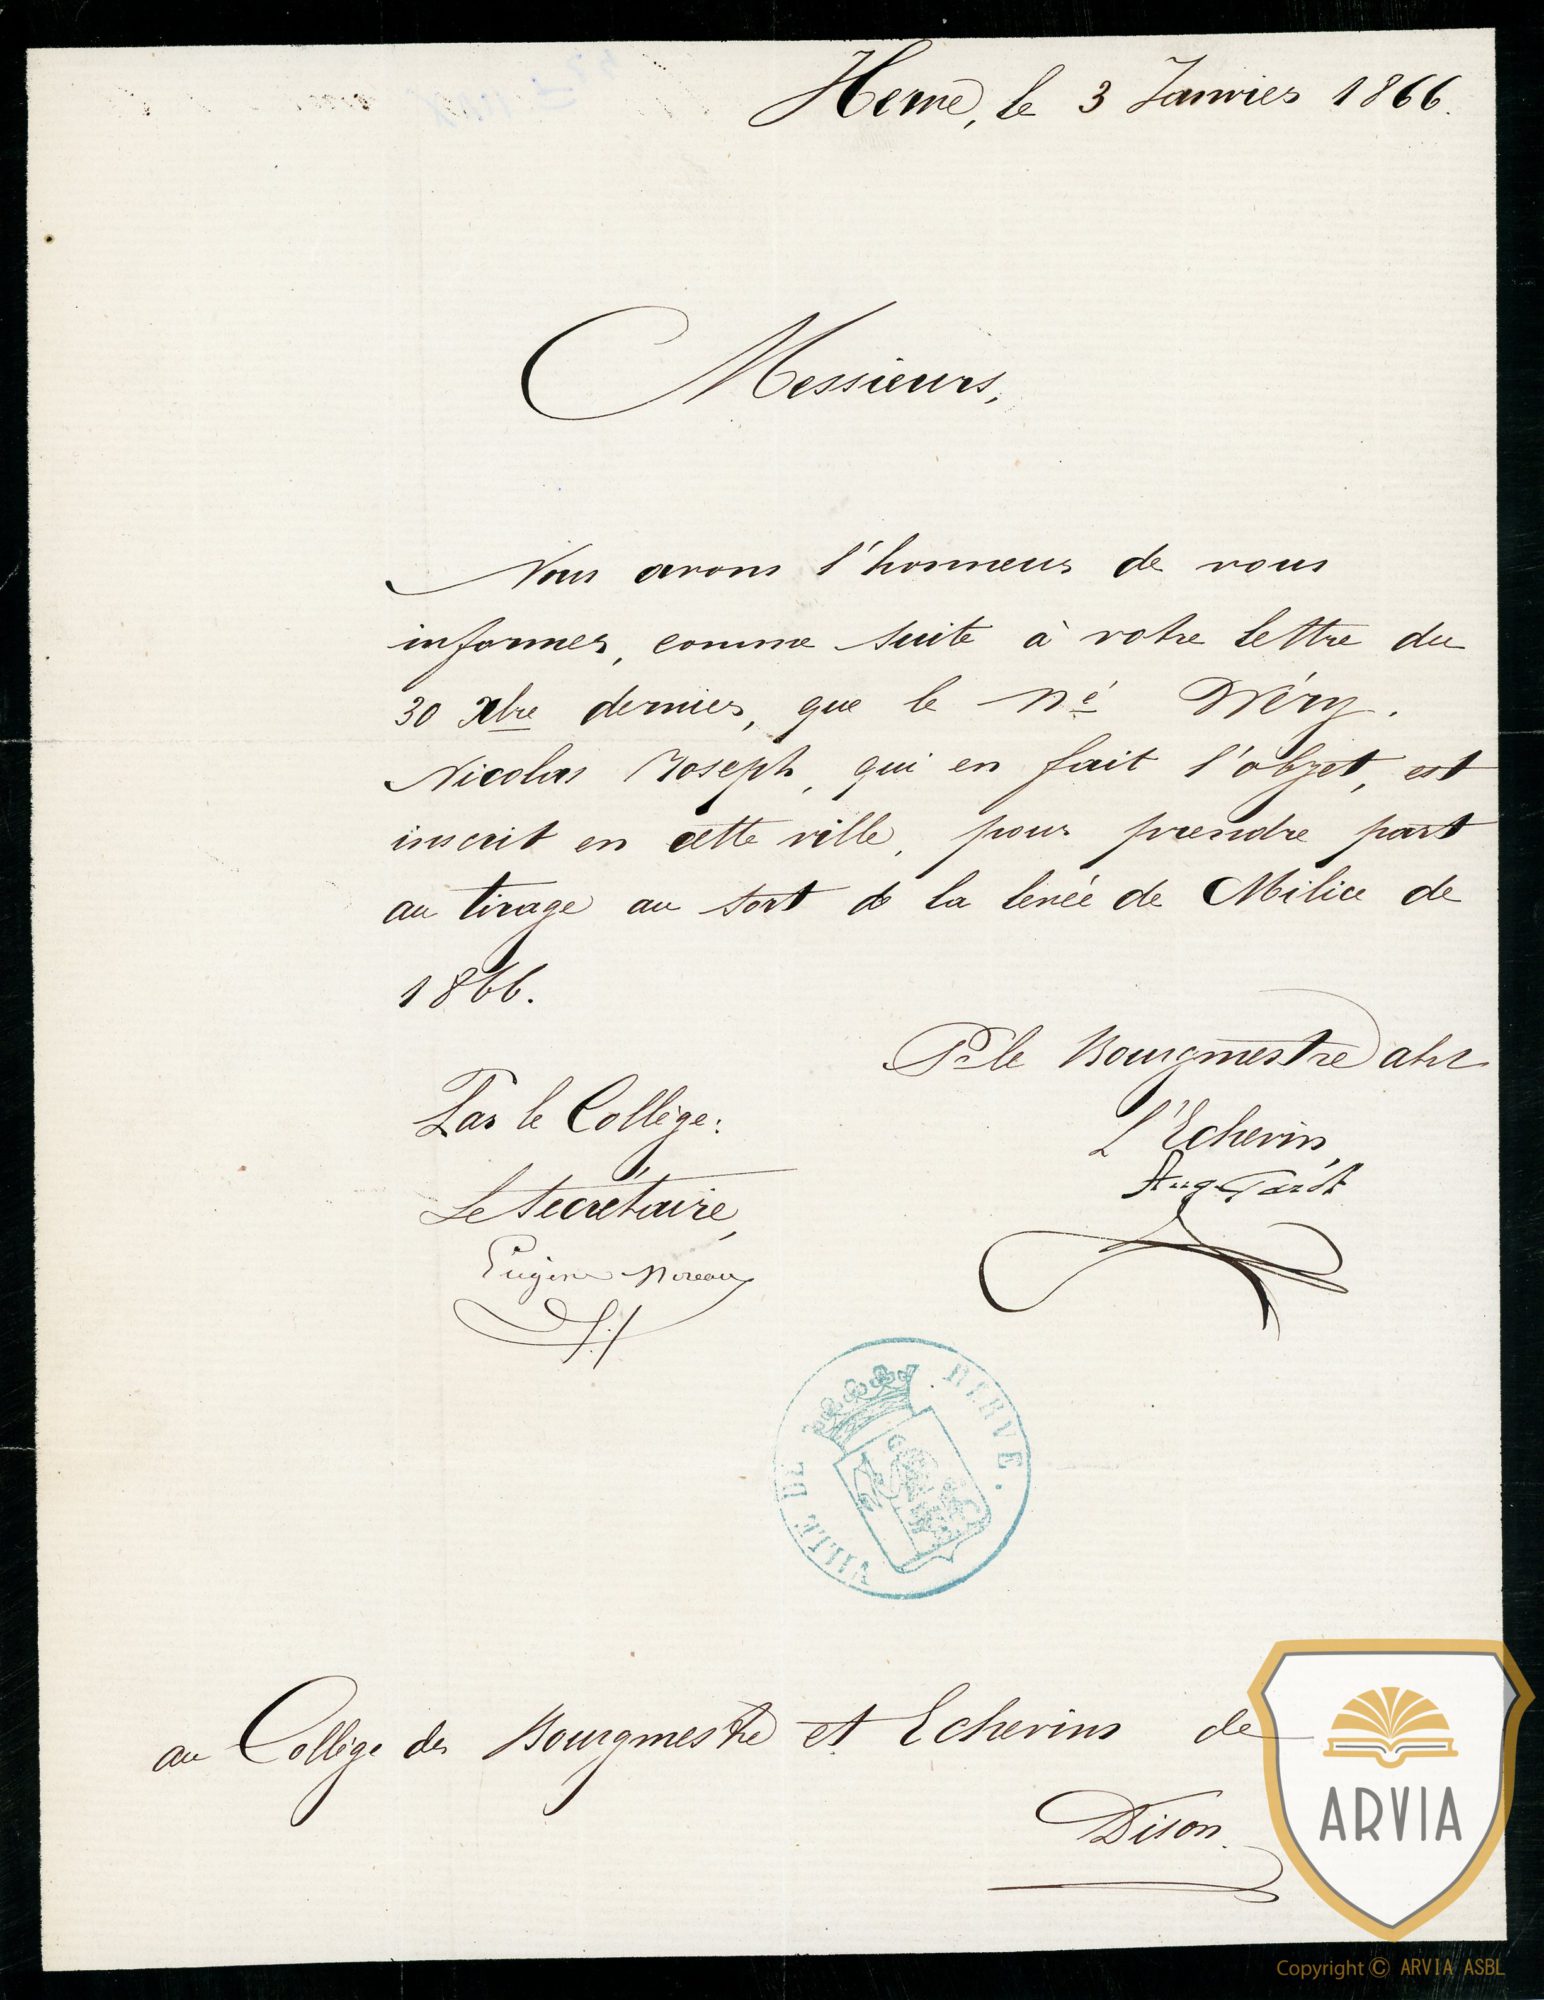 Herve, le 3 Janvier 1866.
Messieurs,
Nous avons l'honneur de vous
informer, comme suite à votre lettre du
30 Xbre dernier, que le Né Wéry.
Nicolas Joseph, qui en fait l'objet, est
inscrit en cette ville, pour prendre part
au tirage au sort de la levée de Milice de
1866.
Pr le Bourgmestre abst
L'Echevin,
Par le Collège:
Le Secrétaire,
Eugène Moreau
VILLE DE HERVE.
au Collège des Bourgmestre et Echevins de
Dison.
ARVIA
Copyright © ARVIA ASBL